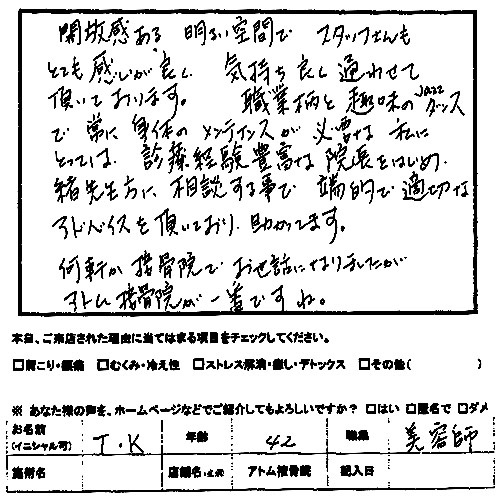 開放感ある 明るい空間で スタッフさんも
とても感じが良く 気持ち良く通わせて
頂いております。 職業柄と趣味のJazzダンス
で常に身体のメンテナンスが必要な私に
とっては、診療経験豊富な院長をはじめ、
諸先生方に相談する事で端的で適切な
アドバイスを頂いており、助かってます。
何軒か接骨院でお世話になりましたが
アトム接骨院が一番ですね。
本日、ご来店された理由に当てはまる項目をチェックしてください。
□肩こり・腰痛 □むくみ・冷え性 □ストレス解消・癒し・デトックス □その他( )
※ あなた様の声を、ホームページなどでご紹介してもよろしいですか? □はい □匿名で □ダメ
お名前(イニシャル可) T・K 年齢 42 職業 美容師
施術名 店舗名 アトム接骨院 記入日